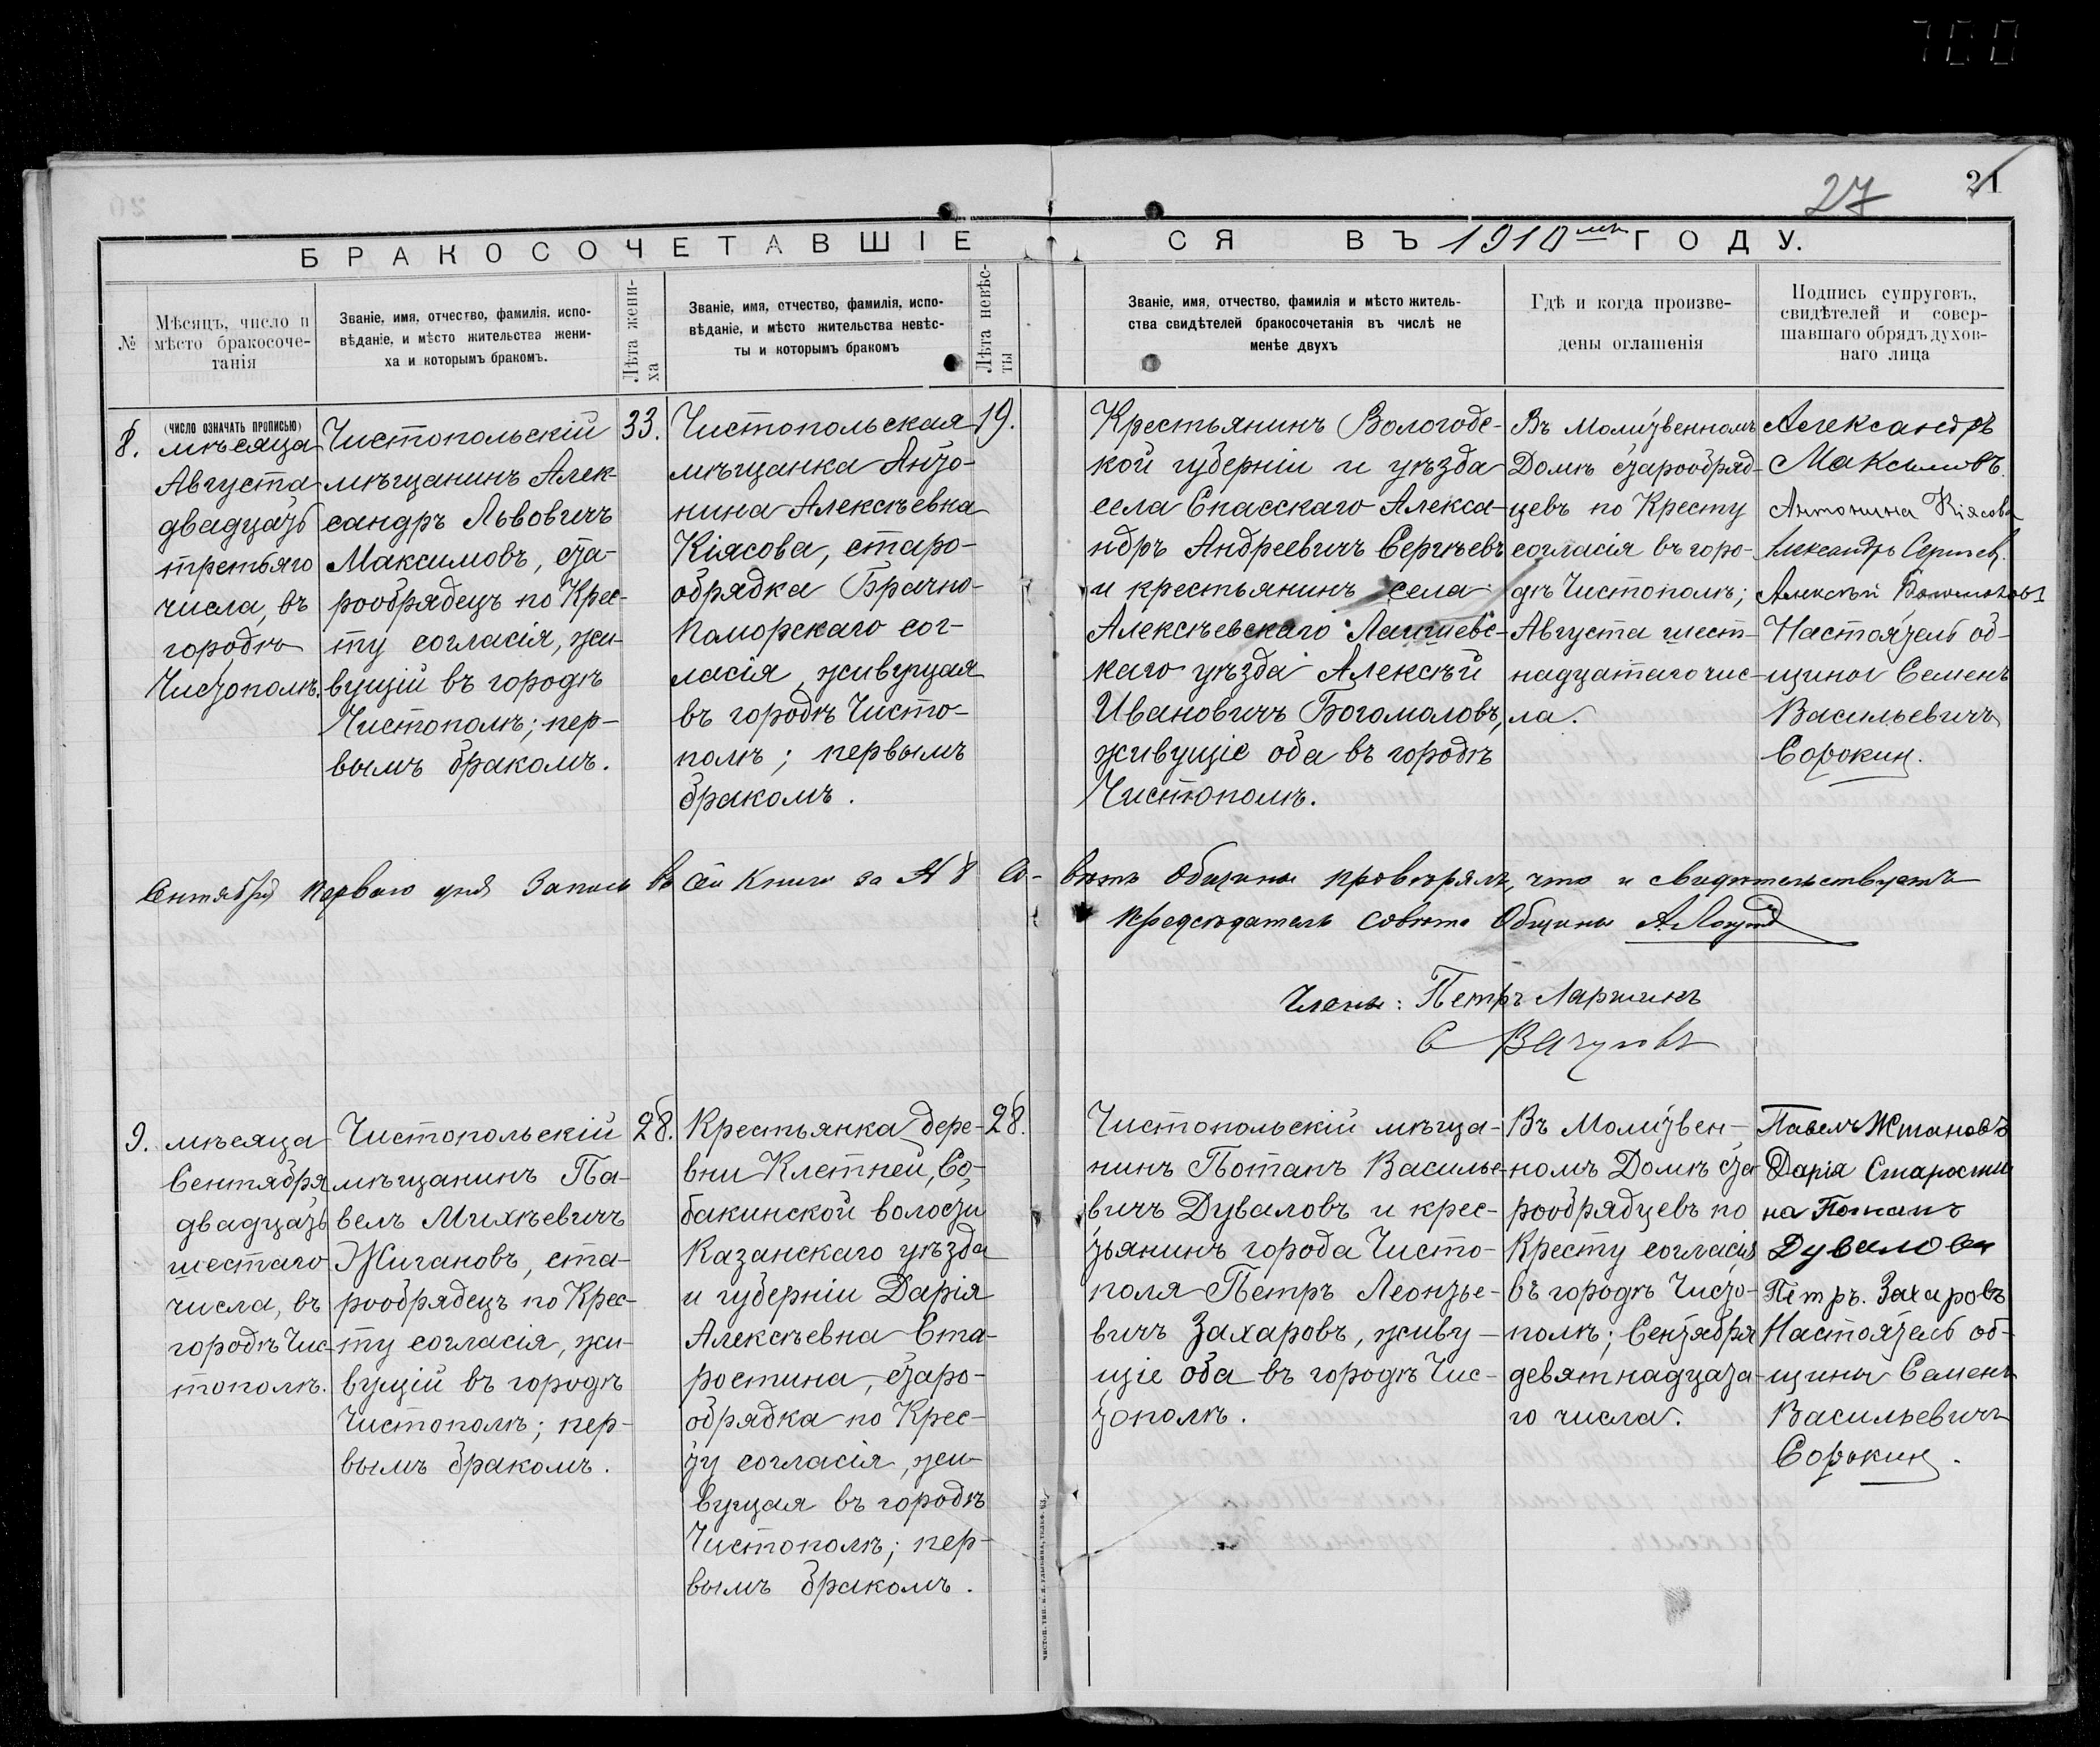 700
27
21
БРАКОСОЧЕТАВШІЕ
СЯ ВЪ 1910 мъ ГОДУ.
№
Мѣсяцъ, число и
мѣсто бракосоче-
танія
Званіе, имя, отчество, фамилія, испо-
вѣданіе, и мѣсто жительства жени-
ха и которымъ бракомъ.
Лѣта жени-
ха
Званіе, имя, отчество, фамилія, испо-
вѣданіе, и мѣсто жительства невѣс-
ты и которымъ бракомъ
Лѣта невѣс-
ты
Званіе, имя, отчество, фамилія и мѣсто житель-
ства свидѣтелей бракосочетанія въ числѣ не
менѣе двухъ
Гдѣ и когда произве-
дены оглашенія
Подпись супруговъ,
свидѣтелей и совер-
шавшаго обрядъ духов-
наго лица
(ЧИСЛО ОЗНАЧАТЬ ПРОПИСЬЮ)
8.
мѣсяца
Августа
двадцать
третьяго
числа, въ
городѣ
Чистополѣ.
Чистопольскій
мѣщанинъ Алек-
сандръ Львовичъ
Максимовъ, ста-
рообрядецъ по Крес-
ту согласія, жи-
вущій въ городѣ
Чистополѣ; пер-
вымъ бракомъ.
33.
Чистопольская
мѣщанка Анто-
нина Алексѣевна
Кіясова, старо-
обрядка Брачно-
Поморскаго сог-
ласія, живущая
въ городѣ Чисто-
полѣ; первымъ
бракомъ.
19.
Крестьянинъ Вологодс-
кой губерніи и уѣзда
села Спасскаго Алекса-
ндръ Андреевичъ Сергѣевъ
и крестьянинъ села
Алексѣевскаго Лаишевс-
каго уѣзда Алексѣй
Ивановичъ Богомоловъ,
живущіе оба въ городѣ
Чистополѣ.
Въ Молитвенномъ
Домѣ старообряд-
цевъ по Кресту
согласія въ горо-
дѣ Чистополѣ;
Августа шест-
надцатаго чис-
ла.
Александръ
Максимовъ.
Антонина Кіясова
Александръ Сергѣев.
Алексѣй Богомоловъ
Настоятель об-
щины Семенъ
Васильевичъ
Сорокин.
Сентября перваго дня Запись въ сей Книге за № 8 Со-
вѣтъ Общины провѣрялъ, что и свидѣтельствуетъ
Председатель совѣта Общины
Члены: Петръ Ларжинъ
С Вачуговъ
9.
мѣсяца
Сентября
двадцать
шестаго
числа, въ
городѣ Чис-
тополѣ.
Чистопольскій
мѣщанинъ Па-
велъ Михѣевичъ
Жигановъ, ста-
рообрядецъ по Крес-
ту согласія, жи-
вущій въ городѣ
Чистополѣ; пер-
вымъ бракомъ.
28.
Крестьянка дере-
вни Клетней, Со-
бакинской волости
Казанскаго уѣзда
и губерніи Дарія
Алексѣевна Ста-
ростина, старо-
обрядка по Крес-
ту согласія, жи-
вущая въ городѣ
Чистополѣ; пер-
вымъ бракомъ.
28.
Чистопольскій мѣща-
нинъ Потапъ Василье-
вичъ Дуваловъ и крес-
тьянинъ города Чисто-
поля Петръ Леонтье-
вичъ Захаровъ, живу-
щіе оба въ городѣ Чис-
тополѣ.
Въ Молитвен-
номъ Домѣ ста-
рообрядцевъ по
Кресту согласія
въ городѣ Чисто-
полѣ; Сентября
девятнадцата-
го числа.
Павелъ Жигановъ
Дарія Старости
на Потапъ
Дуваловъ
Петръ. Захаровъ
Настоятель об-
щины Семенъ
Васильевичъ
Сорокин.